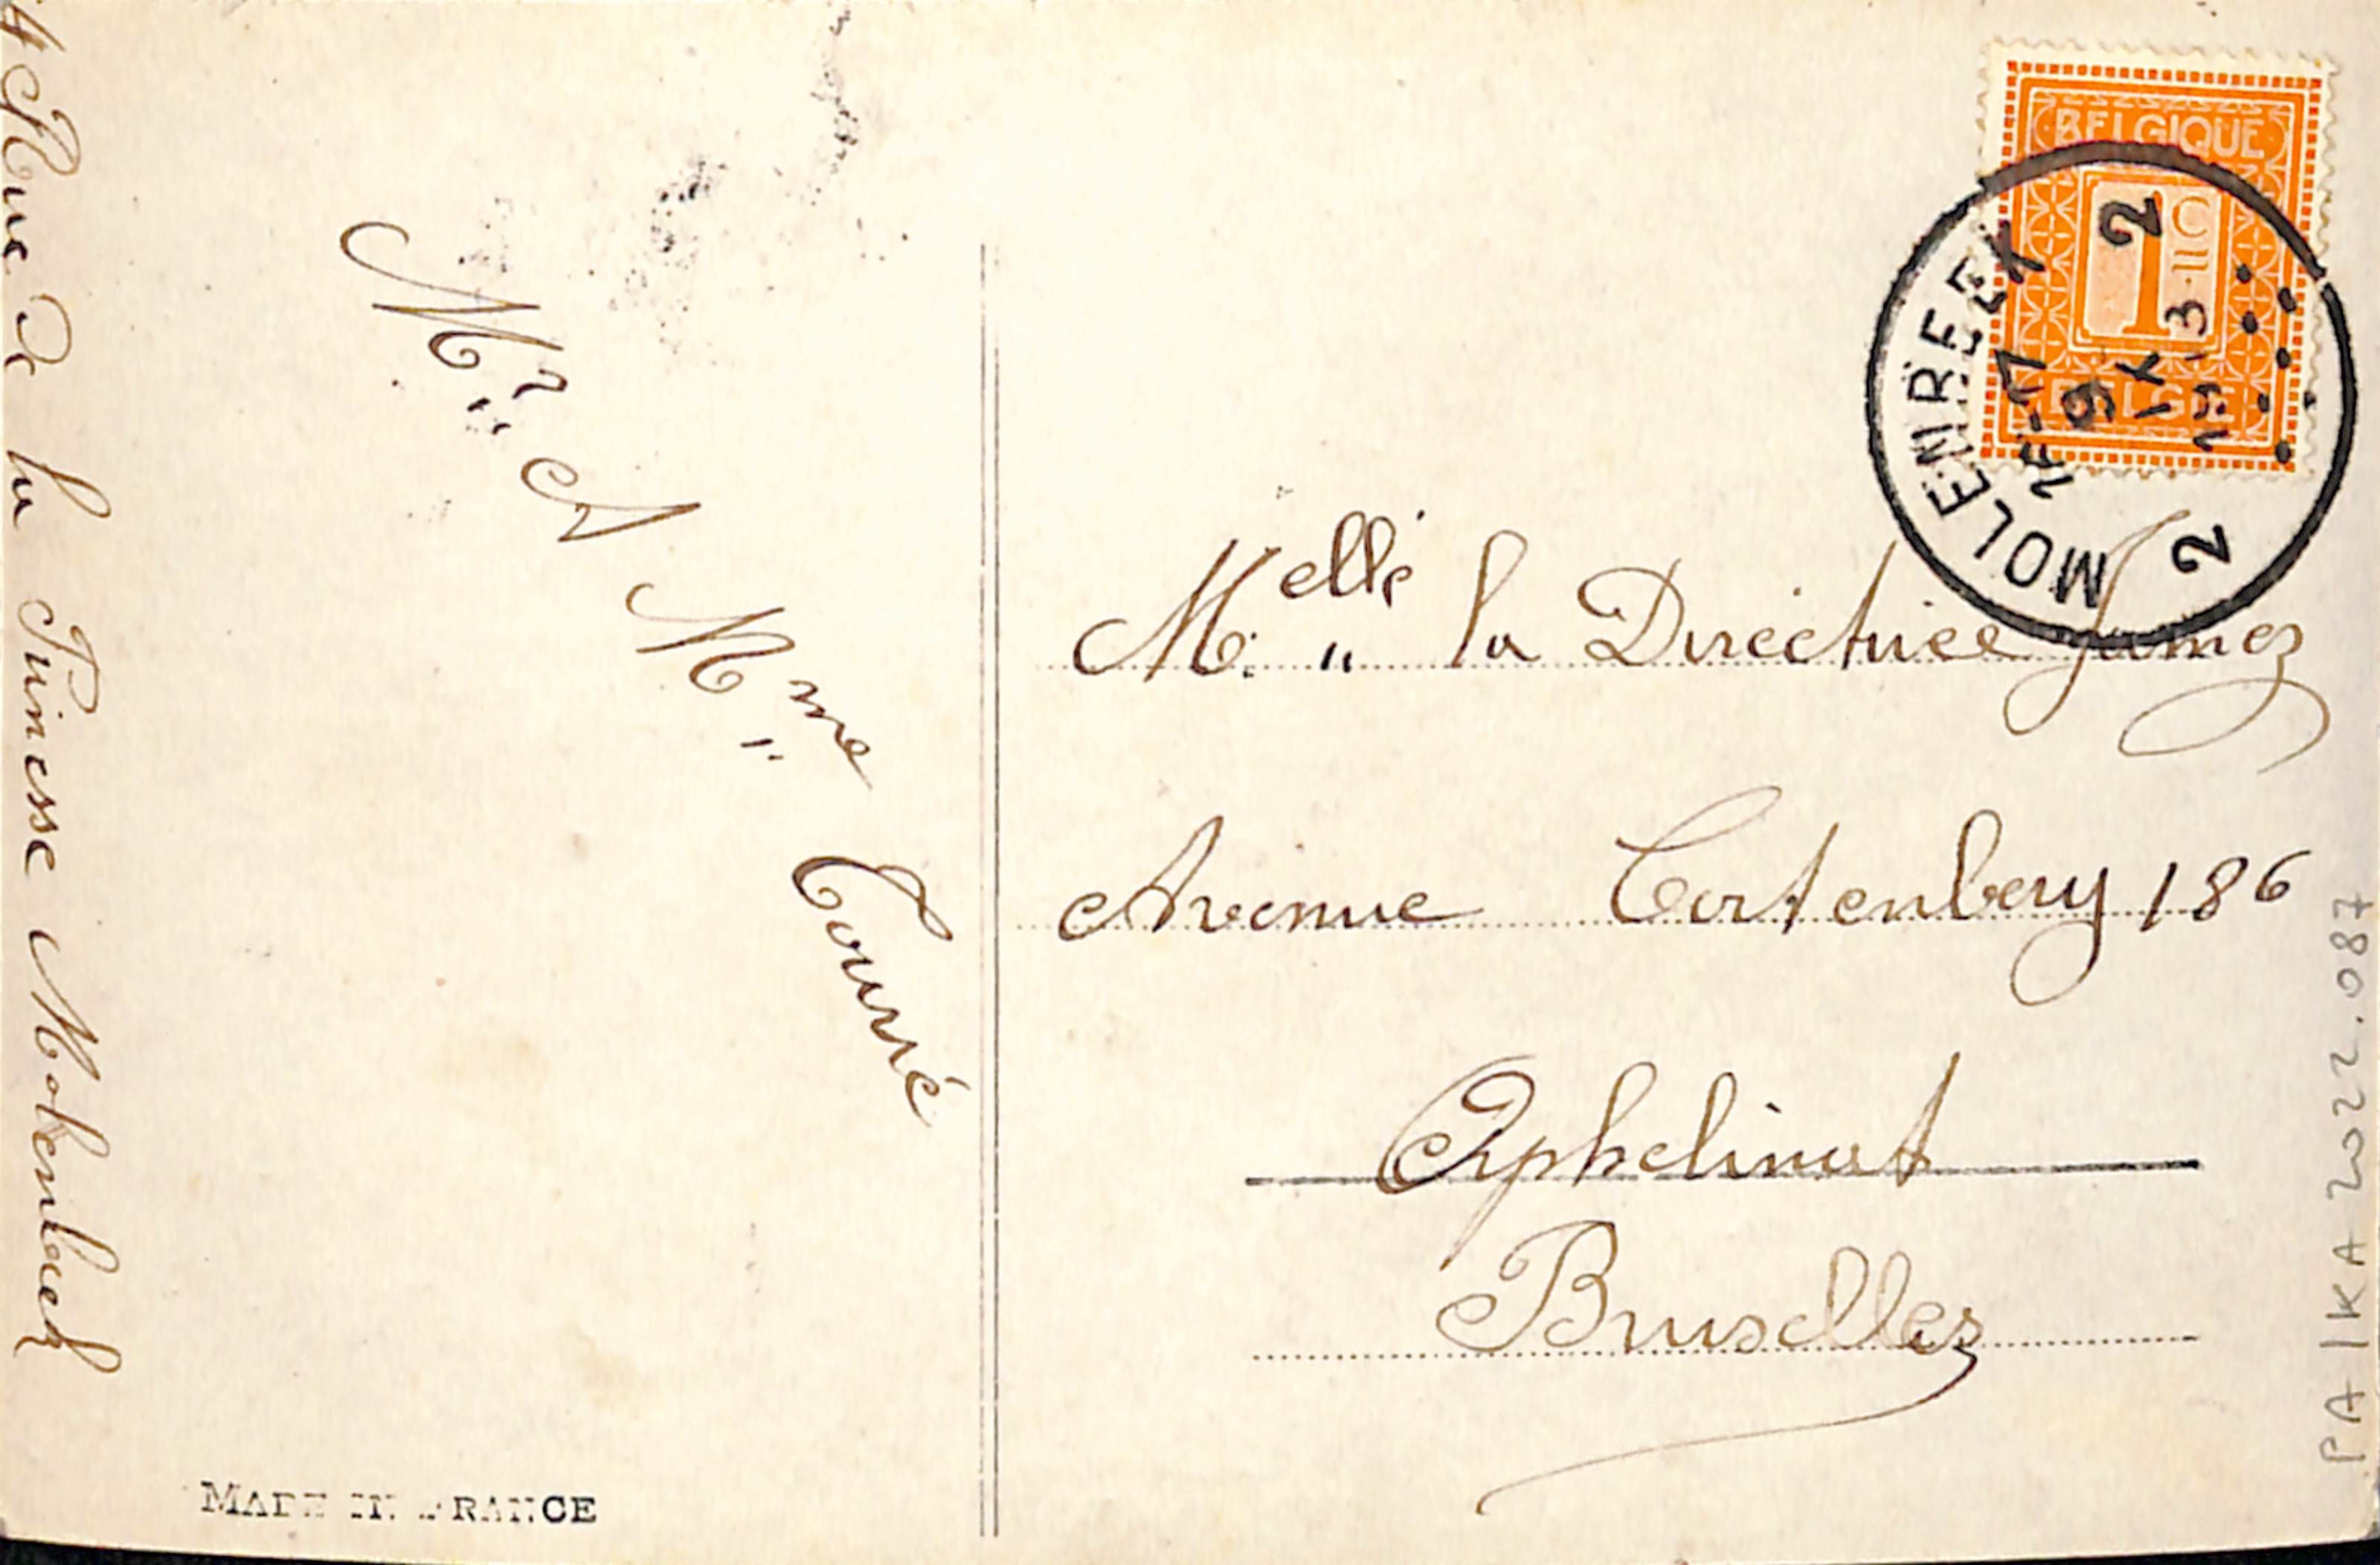 4 Rue de la Princesse Molenbeek
Mr et Mme Tourné
MADE IN FRANCE
BELGIQUE
1 C
BELGIË
MOLENBEEK
2
16-17
9
IX
1913
2
Melle la Directrice Jamez
Avenue Cortenberg 186
Orphelinat
Bruxelles
PA IKA 2022.087